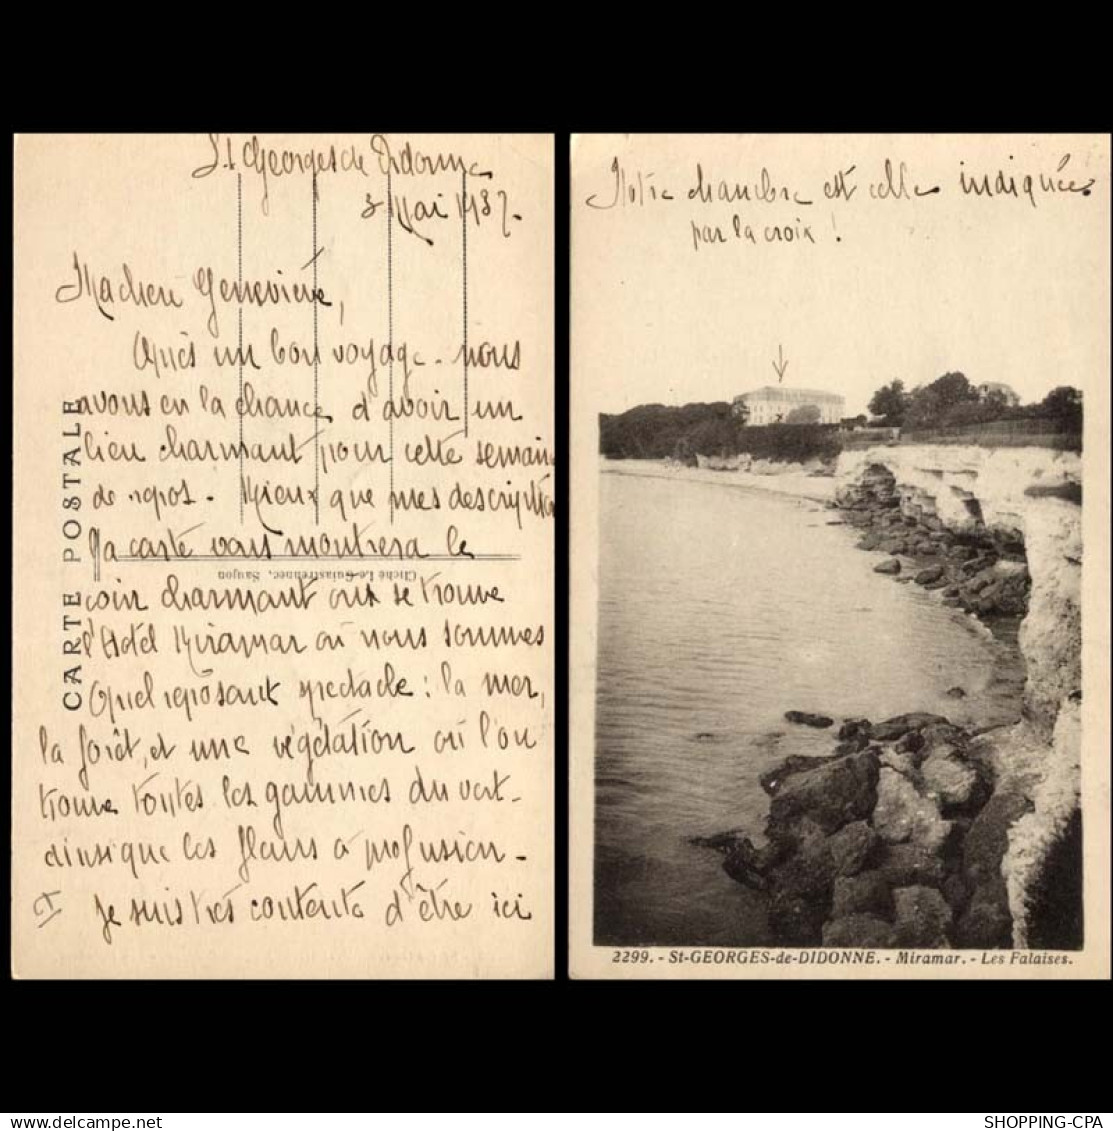 St Georges de Didonne
3 Mai 1937.
Ma chère Geneviève,
Après un bon voyage - nous
avons eu la chance d'avoir un
lieu charmant pour cette semaine
de repos. Mieux que mes descriptions
la carte vous montrera le
coin charmant où se trouve
l'Hotel Miramar où nous sommes
Quel reposant spectacle : la mer,
la forêt, et une végétation où l'on
trouve toutes les gammes du vert -
ainsi que les fleurs à profusion -
Je suis très contente d'être ici
CARTE POSTALE
Cliché Le Guiastrennec, Saujon
Notre chambre est celle indiquée
par la croix !
2299. - St-GEORGES-de-DIDONNE. - Miramar. - Les Falaises.
SHOPPING-CPA